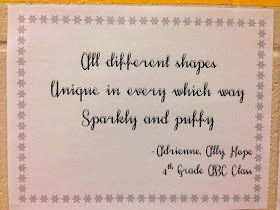 All different shapes
Unique in every which way
Sparkly and puffy
-Adrienne, Ally, Hope
4th Grade ABC Class